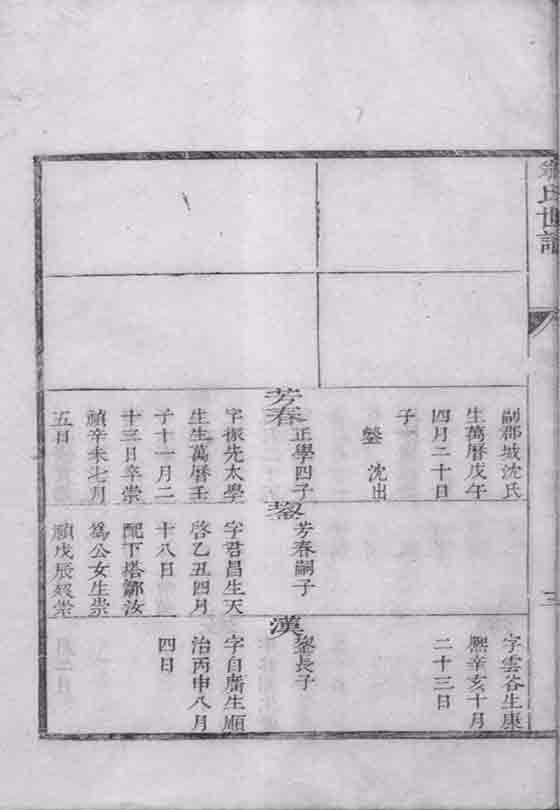 氏世譜
三
副郡城沈氏
生萬曆戊午
四月二十日
子
沈出
芳春
正學四子
字振先太學
生生萬曆壬
子十一月二
十三日卒崇
禎辛未七月
五日
芳春嗣子
字君昌生天
啓乙丑四月
十八日
配下塔鄒汝
爲公女生崇
禎戊辰歿崇
字雲谷生康
熙辛亥十月
二十三日
漢
長子
字自廣生順
治丙申八月
四日